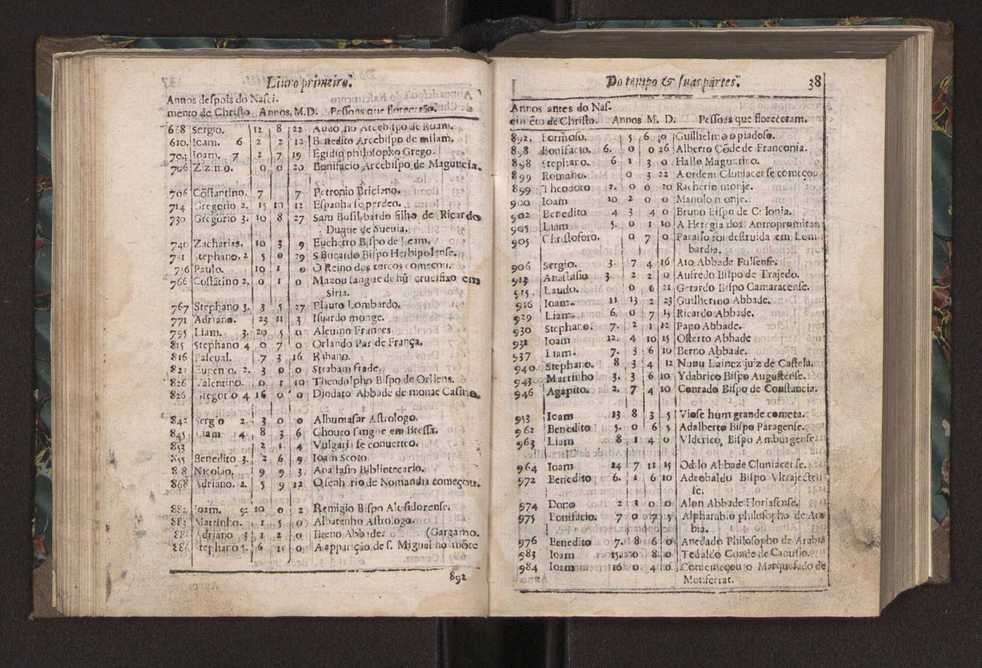 Liuro primeiro.
Annos despois do Nasci-
mento de Christo. Annos. M. D. Pessoas que florecerão.
668 Sergio. 12 8 22 Audo no Arcebispo de Ruam.
Ioam. 6 2 2 12 Benedito Arcebispo de milam.
Ioam. 7 2 7 19 Egidio philosopho Grego.
706 0 0 20 Bonifacio Arcebispo de Maguncia.
706 Cõstantino. 7 7 Petronio Briciano.
714 Gregorio 2. 15 10 12 Espanha se perdeo.
730 Gregorio 3. 10 8 27 Sam filho de Ricardo
Duque de Sueuia.
740 Zacharias. 10 3 9 Eucherio Bispo de Leam.
Stephano. 2 5 0 29 S. Bucardo Bispo Herbipolense.
Paulo. 10 1 0 O Reino dos torcos começou.
766 Costãtino 2. 0 1 0 Manou sangue de hũ crucifixo em
Siria.
767 Stephano 3. 3 5 27 Plauto Lombardo.
771 Adriano. 23 11 3 Isuardo monge.
795 Liam. 3. 20 5 0 Alcuino Frances.
815 Stephano 4 0 7 0 Orlando Par de França.
816 Pascual. 7 3 16 Rabano.
Eugenio. 2. 3 0 0 Strabam frade.
826 Valentino. 0 1 10 Theodolpho Bispo de Orliens.
826 Gregorio 4 16 0 0 Deodato Abbade de monae Casino.
842 Sergio 2. 3 0 0 Albumasar Astrologo.
845 Liam 4. 8 3 6 Choueo sangue em Bressa.
853 2 1 4 Vulgaria se conuerteo.
Benedito 3. 2 6 9 Ioam Scoto
Nicolao. 9 9 3 Anastasio Bibliotecario.
868 Adriano. 2. 5 9 12 O senhorio de Normandia começou.
882 Ioam. 9. 10 0 2 Remigio Bispo Altisidorense.
883 Martinho. 1 5 0 Albatenho Astrologo.
Adriano 3 1 2 0 Ibreno Abbade. (Gargano.
Stephano 5. 6 11 0 A apparição de S. Miguel no mõte
892
Do tempo & suas partes. 38
Annos antes do Nas-
cimẽto de Christo. Annos M. D. Pessoas que floreceram.
892. Formoso. 5 6 10 Guilhelmo o piadoso.
898 Bonifacio. 6. 0 0 26 Alberto Cõde de Franconia.
898 Stephano. 6 1 3 0 Hallo Maguntino.
899 Romano. 0 3 22 A ordem Cluniacense começou
899 Theodoro 2. 0 0 20 Racherio monje.
900 Ioam 10 2 0 0 Manolo monje.
902 Benedito 4 3 4 0 Bruno Bispo de Colonia.
905 Liam 5. 0 1 10 A Heregia dos Antropomitan
905 Christoforo. 0 7 0 Paraiso foi destruida em Lom
bardia.
906 Sergio. 3. 7 4 16 Ato Abbade Fulsense.
913 Anastasio 3. 2 2 0 Aufredo Bispo de Trajedo.
915. Laudo. 0 6 21 Gerardo Bispo Camaracense.
916 Ioam. 11 13 2 23 Guilhelmo Abbade.
929 Liam. 6. 0 7 15 Ricardo Abbade.
930 Stephano. 7. 2 1 12 Papo Abbade.
931 Ioam 12. 4 10 15 Osterto Abbade
937 Liam. 7. 3 6 10 Berno Abbade.
940 Stephano. 8 3 4 12 Nunu Lainez juiz de Castela.
943 Martinho 3. 3 6 10 Ydabrico Bispo Augustense.
946 Agapito. 2. 7 4 10 Conrado Bispo de Constancia.
953 Ioam 13 8 3 5 Viose hum grande cometa.
962 Benedito 5. 0 6 5 Adalberto Bispo Paragense.
963 Liam 8 1 4 0 Vldcrico, Bispo Amburgense.
964 Ioam 24 7 11 15 Odilo Abbade Cluniacense.
972 Benedito 6. 1 6 10 Adeobaldo Bispo Vltrajecten
se.
974 Dono 2 1 0 0 Alon Abbade Floriasense.
975 Bonifacio. 7 0 7 5 Alpharabio philosopho de Ara
bia.
976 Benedito 7. 8 6 0 Anedado Philosopho de Arabia
983 Ioam 15. 0 8 0 Tedaldo Conde de Canusio.
984 Ioam 16 0 4 0 Comemeçou o Marquesado de
Monferrat.